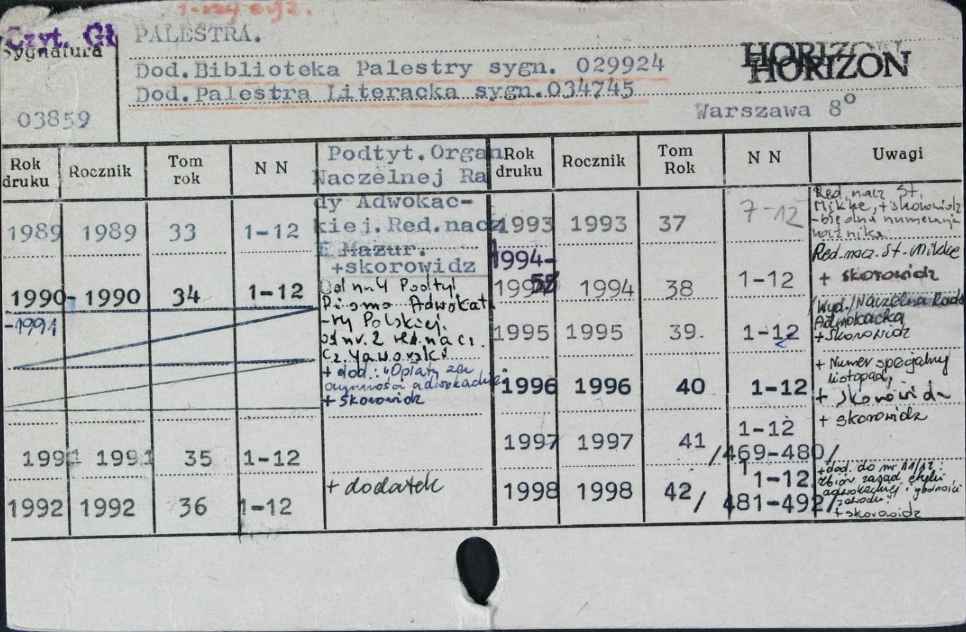 1-szy egz.
Czyt. Gł
Sygnatura
PALESTRA.
HORIZON
HORIZON
Dod.Biblioteka Palestry sygn. 029924
Dod.Palestra Literacka sygn.034745
03859
Warszawa 8°
Rok druku Rocznik Tom rok N N
Podtyt.Organ
Naczelnej Ra
dy Adwokac-
kiej.Red.nacz
E Mazur.
+skorowidz
1989 1989 33 1-12
1990 - 1990 34 1-12
-1991
Od nr 4 Podtyt
Pismo Adwokat
-ry Polskiej.
od nr. 2 red.nacz.
Cz. Jaworski
+ dod.: "Opłaty za
czynności adwokackie"
+ skorowidz
1991 1991 35 1-12
1992 1992 36 1-12
+ dodatek
Rok druku Rocznik Tom Rok N N Uwagi
1993 1993 37 7-12
Red. nacz St.
Mikke, + skorowidz
-błędna numeracja
rocznika
1994-
1994 38 1-12
Red. nacz. St. Mikke
+ skorowidz
1995 1995 39. 1-12
/Wyd./Naczelna Rada
Adwokacka
+ Skorowidz
1996 1996 40 1-12
+ Numer specjalny
listopad,
+ skorowidz
1997 1997 41 1-12
/469-480/
+ skorowidz
1998 1998 42 1-12
/ 481-492/
+ dod. do nr 11/12:
zbiór zasad etyki
adwokackiej i godności
zawodu
+ skorowidz